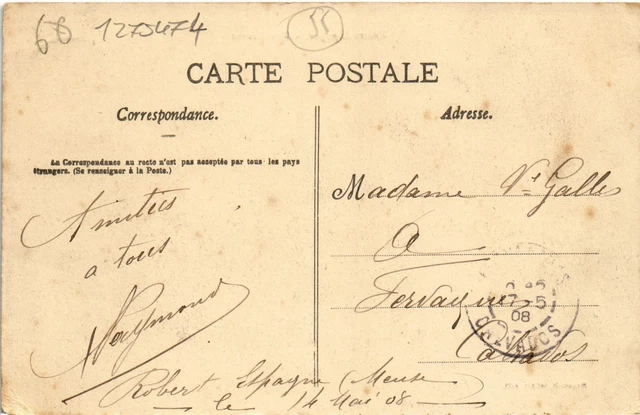 60 1275474 55
CARTE POSTALE
Correspondance.
Adresse.
La Correspondance au recto n'est pas acceptée par tous les pays
étrangers. (Se renseigner à la Poste.)
Amitiés
a tous
Raymond
Robert Espagne (Meuse
le 14 Mai 08 -
Madame Vve Galles
A
Fervaques
Calvados
08
CALVADOS